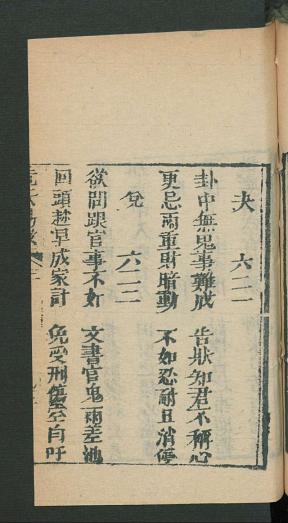 夬 六二一
卦中無鬼事難成 告狀知君不稱心
更忌兩重財暗動 不如忍耐且消停
兌 六二二
欲問跟官事不好 文書官鬼兩差池
回頭趂早成家計 免受刑傷空自吁